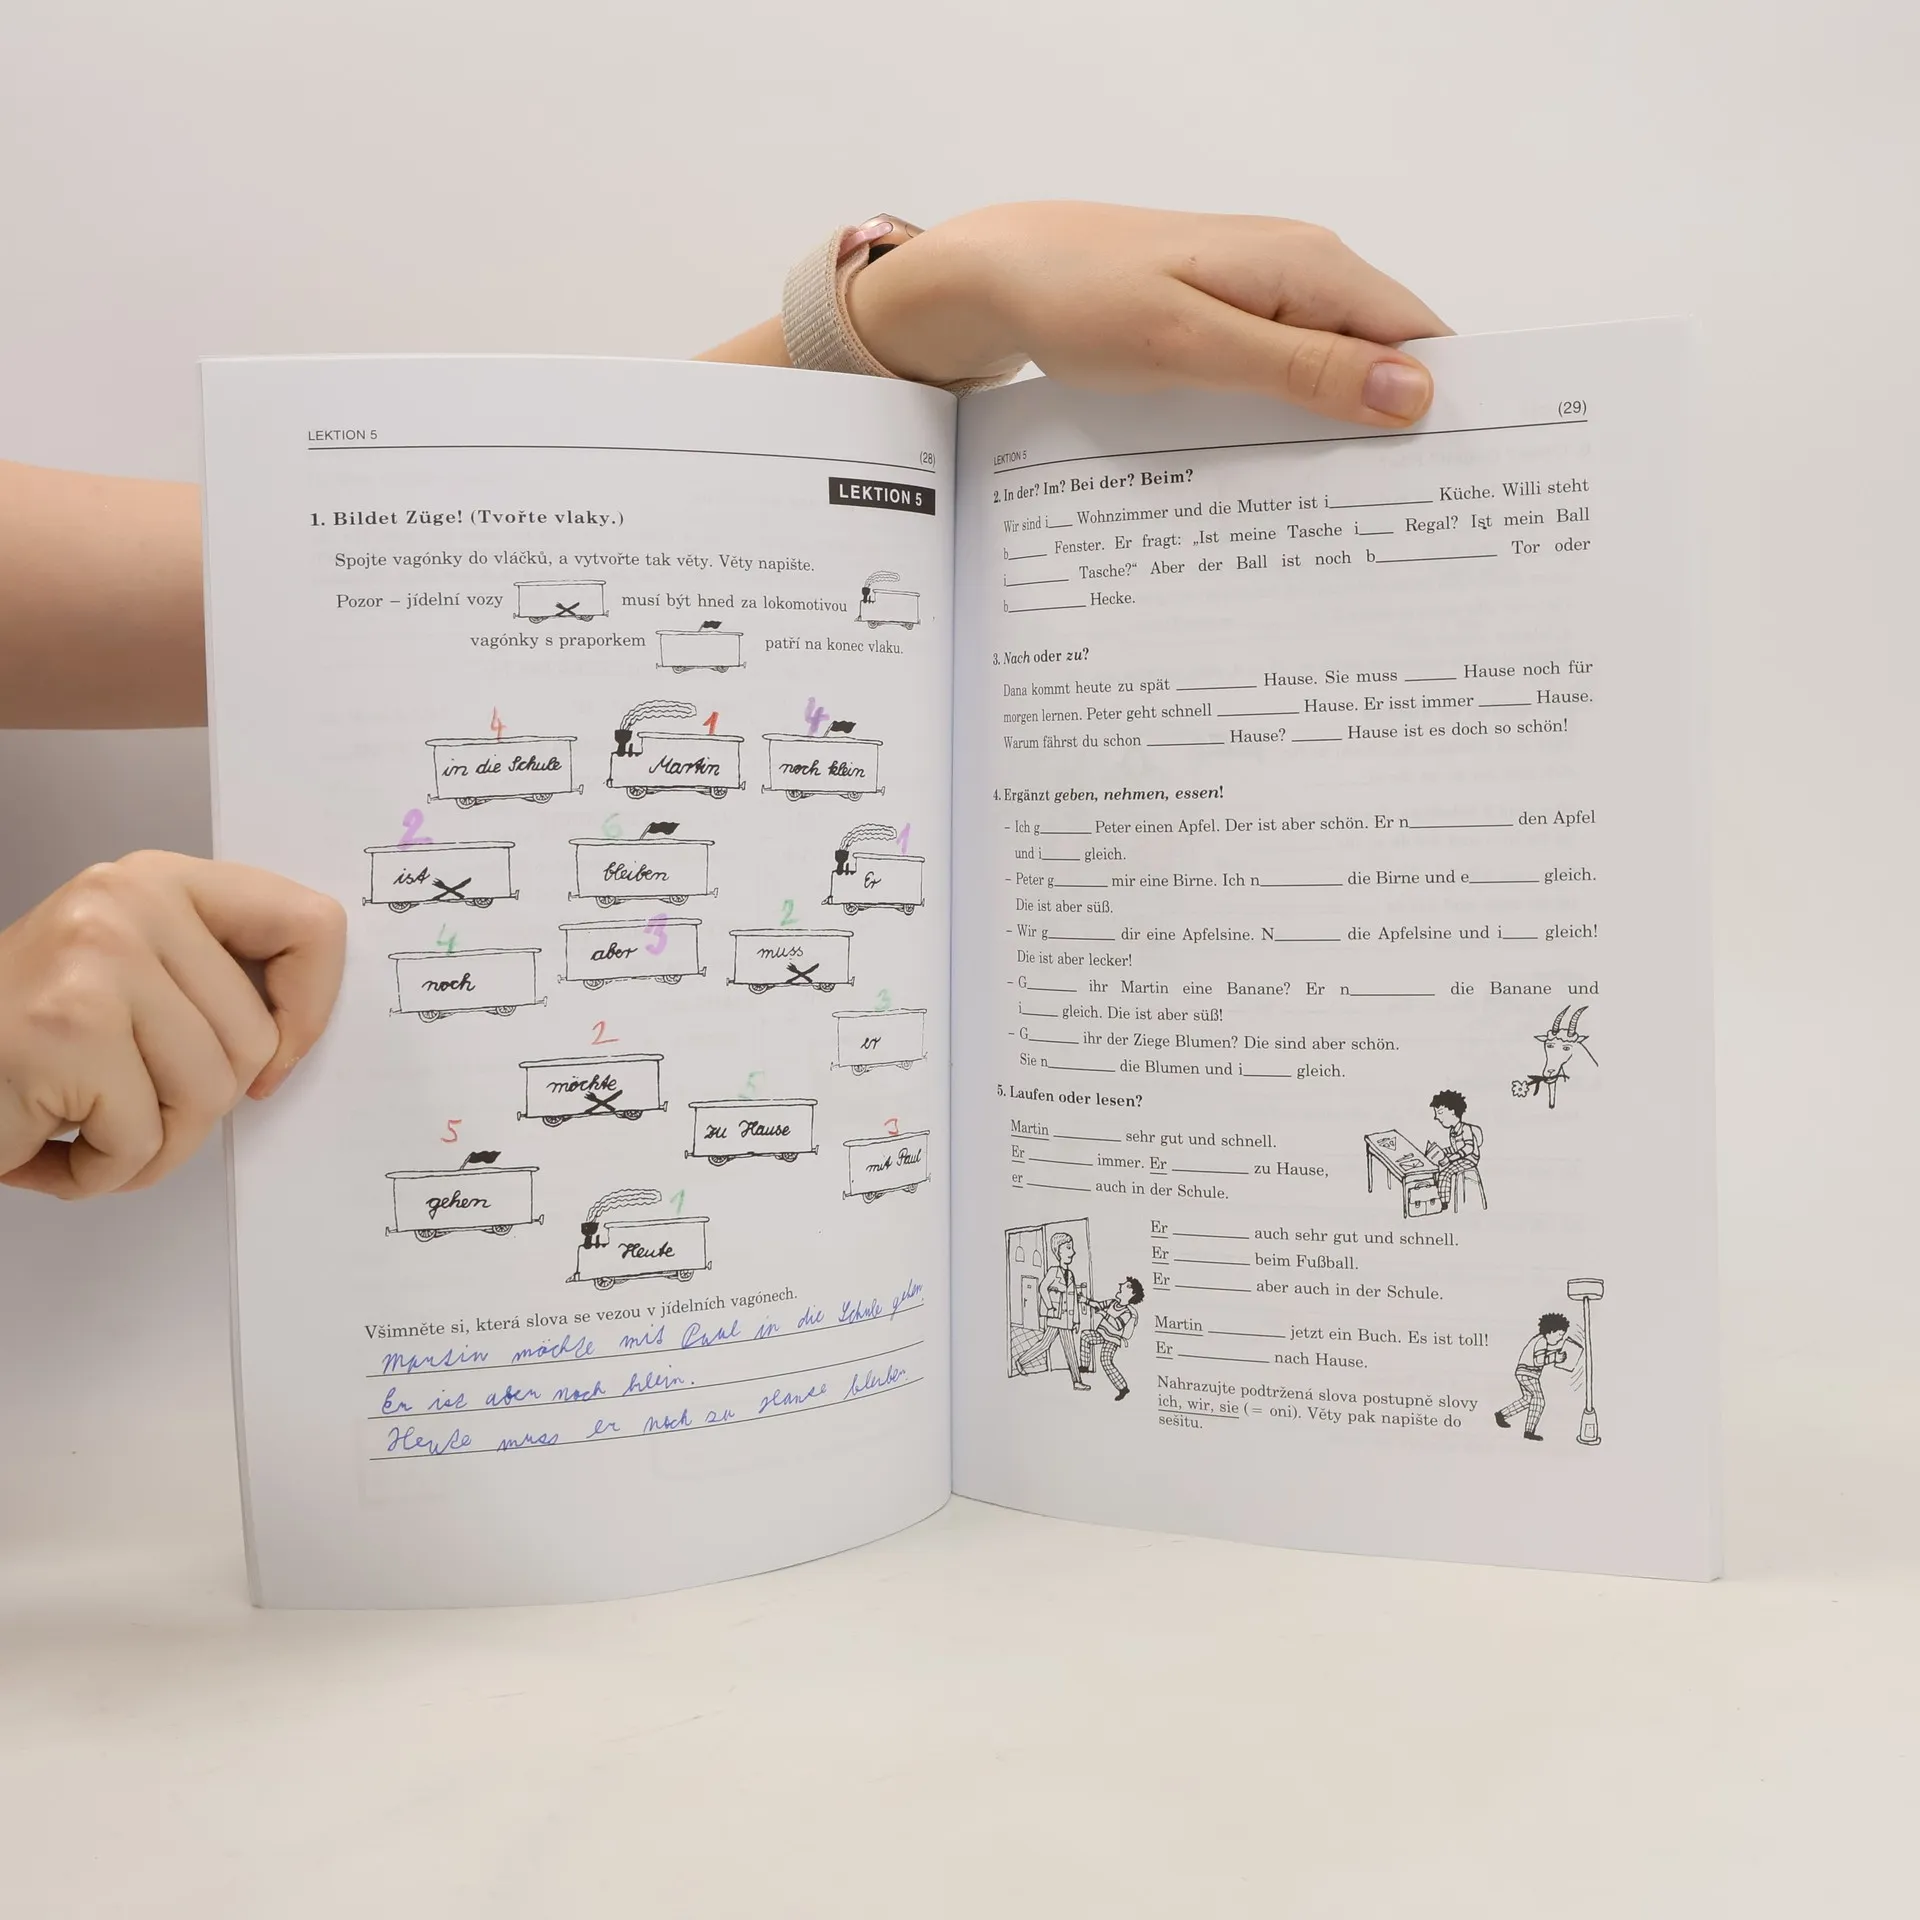 LEKTION 5
(28)
LEKTION 5
1. Bildet Züge! (Tvořte vlaky.)
Spojte vagónky do vláčků, a vytvořte tak věty. Věty napište.
Pozor – jídelní vozy musí být hned za lokomotivou
vagónky s praporkem patří na konec vlaku.
4 1 4
in die Schule Martin noch klein
2 6 1
ist bleiben Er
4 aber 3 2
noch muss
3
er
2
möchte
5
zu Hause
5 3
gehen mit Paul
1
Heute
Všimněte si, která slova se vezou v jídelních vagónech.
Martin möchte mit Paul in die Schule gehen.
Er ist aber noch klein.
Heute muss er noch zu Hause bleiben.
(29)
LEKTION 5
2. In der? Im? Bei der? Beim?
Wir sind i____ Wohnzimmer und die Mutter ist i____ Küche. Willi steht
b____ Fenster. Er fragt: „Ist meine Tasche i____ Regal? Ist mein Ball
i____ Tasche?“ Aber der Ball ist noch b____ Tor oder
b____ Hecke.
3. Nach oder zu?
Dana kommt heute zu spät ____ Hause. Sie muss ____ Hause noch für
morgen lernen. Peter geht schnell ____ Hause. Er isst immer ____ Hause.
Warum fährst du schon ____ Hause? ____ Hause ist es doch so schön!
4. Ergänzt geben, nehmen, essen!
– Ich g____ Peter einen Apfel. Der ist aber schön. Er n____ den Apfel
und i____ gleich.
– Peter g____ mir eine Birne. Ich n____ die Birne und e____ gleich.
Die ist aber süß.
– Wir g____ dir eine Apfelsine. N____ die Apfelsine und i____ gleich!
Die ist aber lecker!
– G____ ihr Martin eine Banane? Er n____ die Banane und
i____ gleich. Die ist aber süß!
– G____ ihr der Ziege Blumen? Die sind aber schön.
Sie n____ die Blumen und i____ gleich.
5. Laufen oder lesen?
Martin ____ sehr gut und schnell.
Er ____ immer. Er ____ zu Hause,
er ____ auch in der Schule.
Er ____ auch sehr gut und schnell.
Er ____ beim Fußball.
Er ____ aber auch in der Schule.
Martin ____ jetzt ein Buch. Es ist toll!
Er ____ nach Hause.
Nahrazujte podtržená slova postupně slovy
ich, wir, sie (= oni). Věty pak napište do
sešitu.